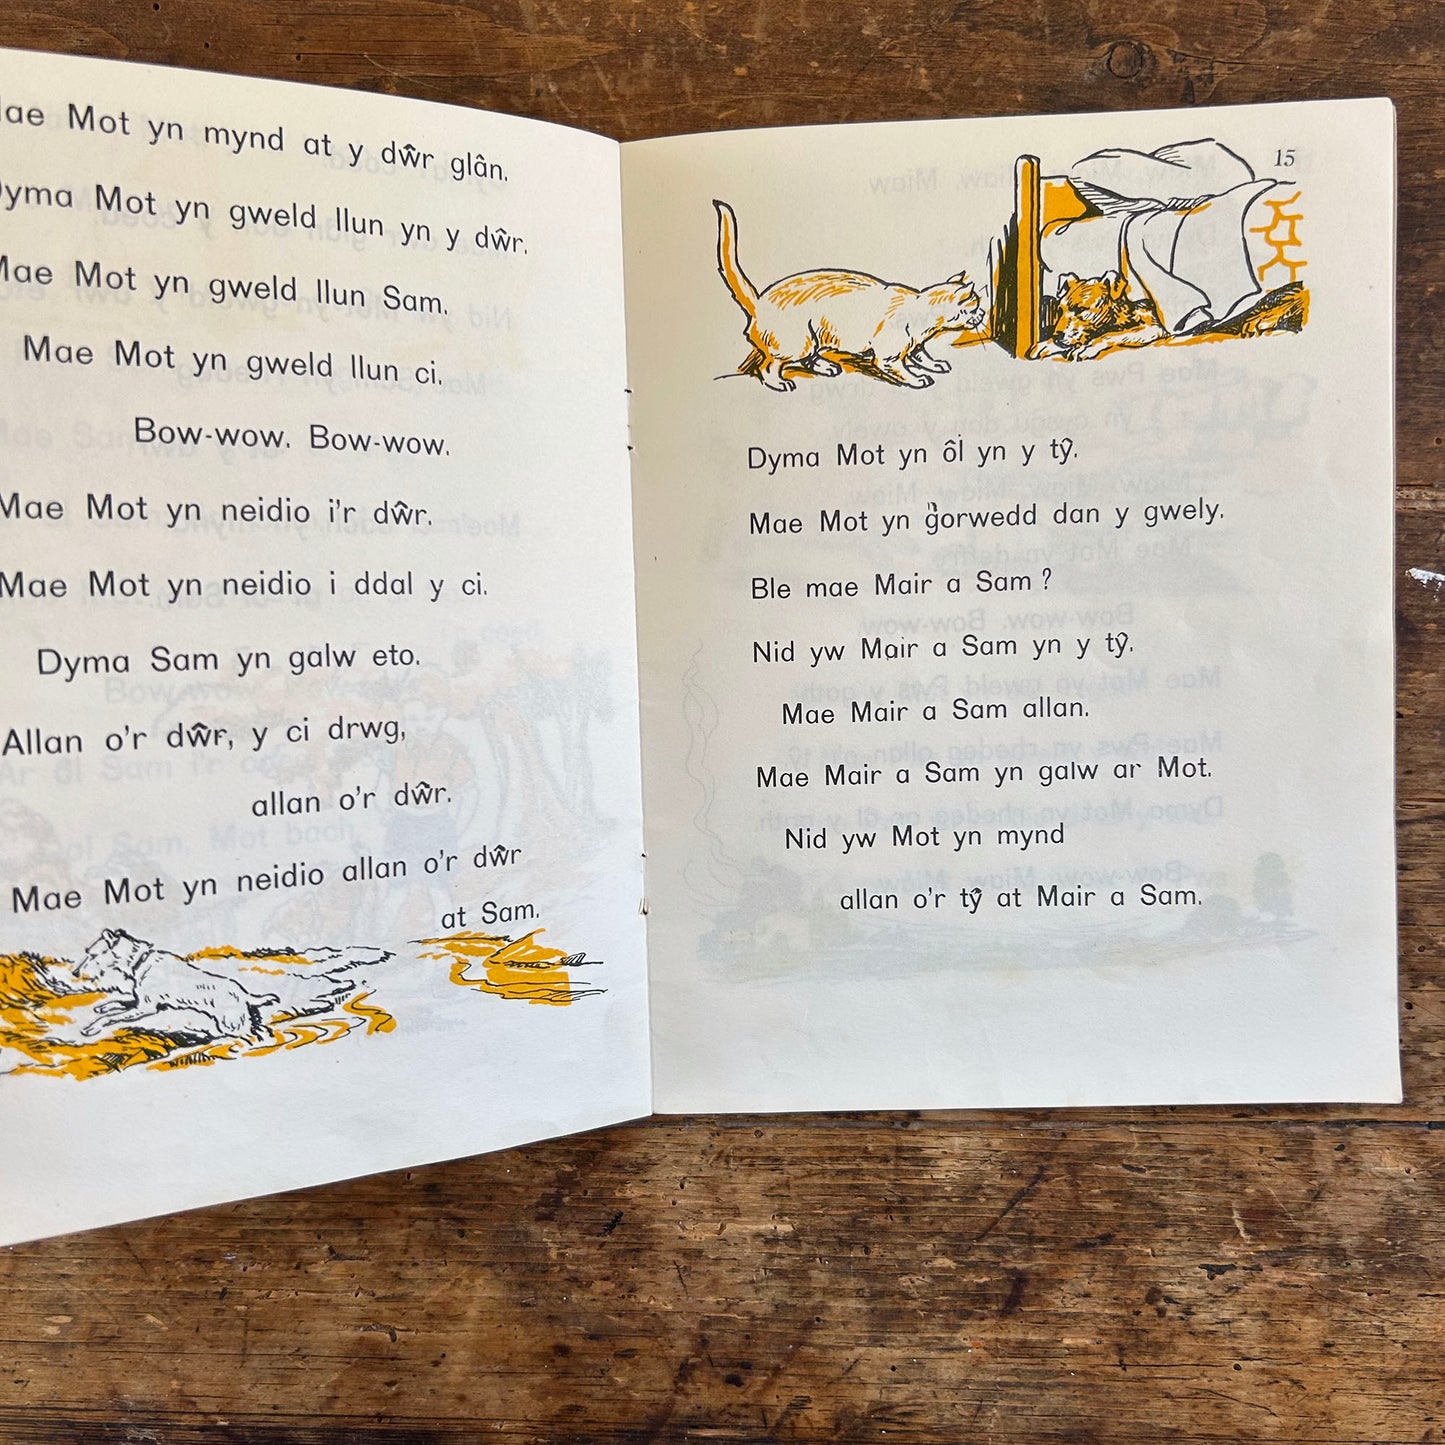 Mae Mot yn mynd at y dŵr glân.
Dyma Mot yn gweld llun yn y dŵr.
Mae Mot yn gweld llun Sam.
Mae Mot yn gweld llun ci.
Bow-wow. Bow-wow.
Mae Mot yn neidio i'r dŵr.
Mae Mot yn neidio i ddal y ci.
Dyma Sam yn galw eto.
Allan o'r dŵr, y ci drwg,
allan o'r dŵr.
Mae Mot yn neidio allan o'r dŵr
at Sam.
15
Dyma Mot yn ôl yn y tŷ.
Mae Mot yn gorwedd dan y gwely.
Ble mae Mair a Sam ?
Nid yw Mair a Sam yn y tŷ.
Mae Mair a Sam allan.
Mae Mair a Sam yn galw ar Mot.
Nid yw Mot yn mynd
allan o'r tŷ at Mair a Sam.